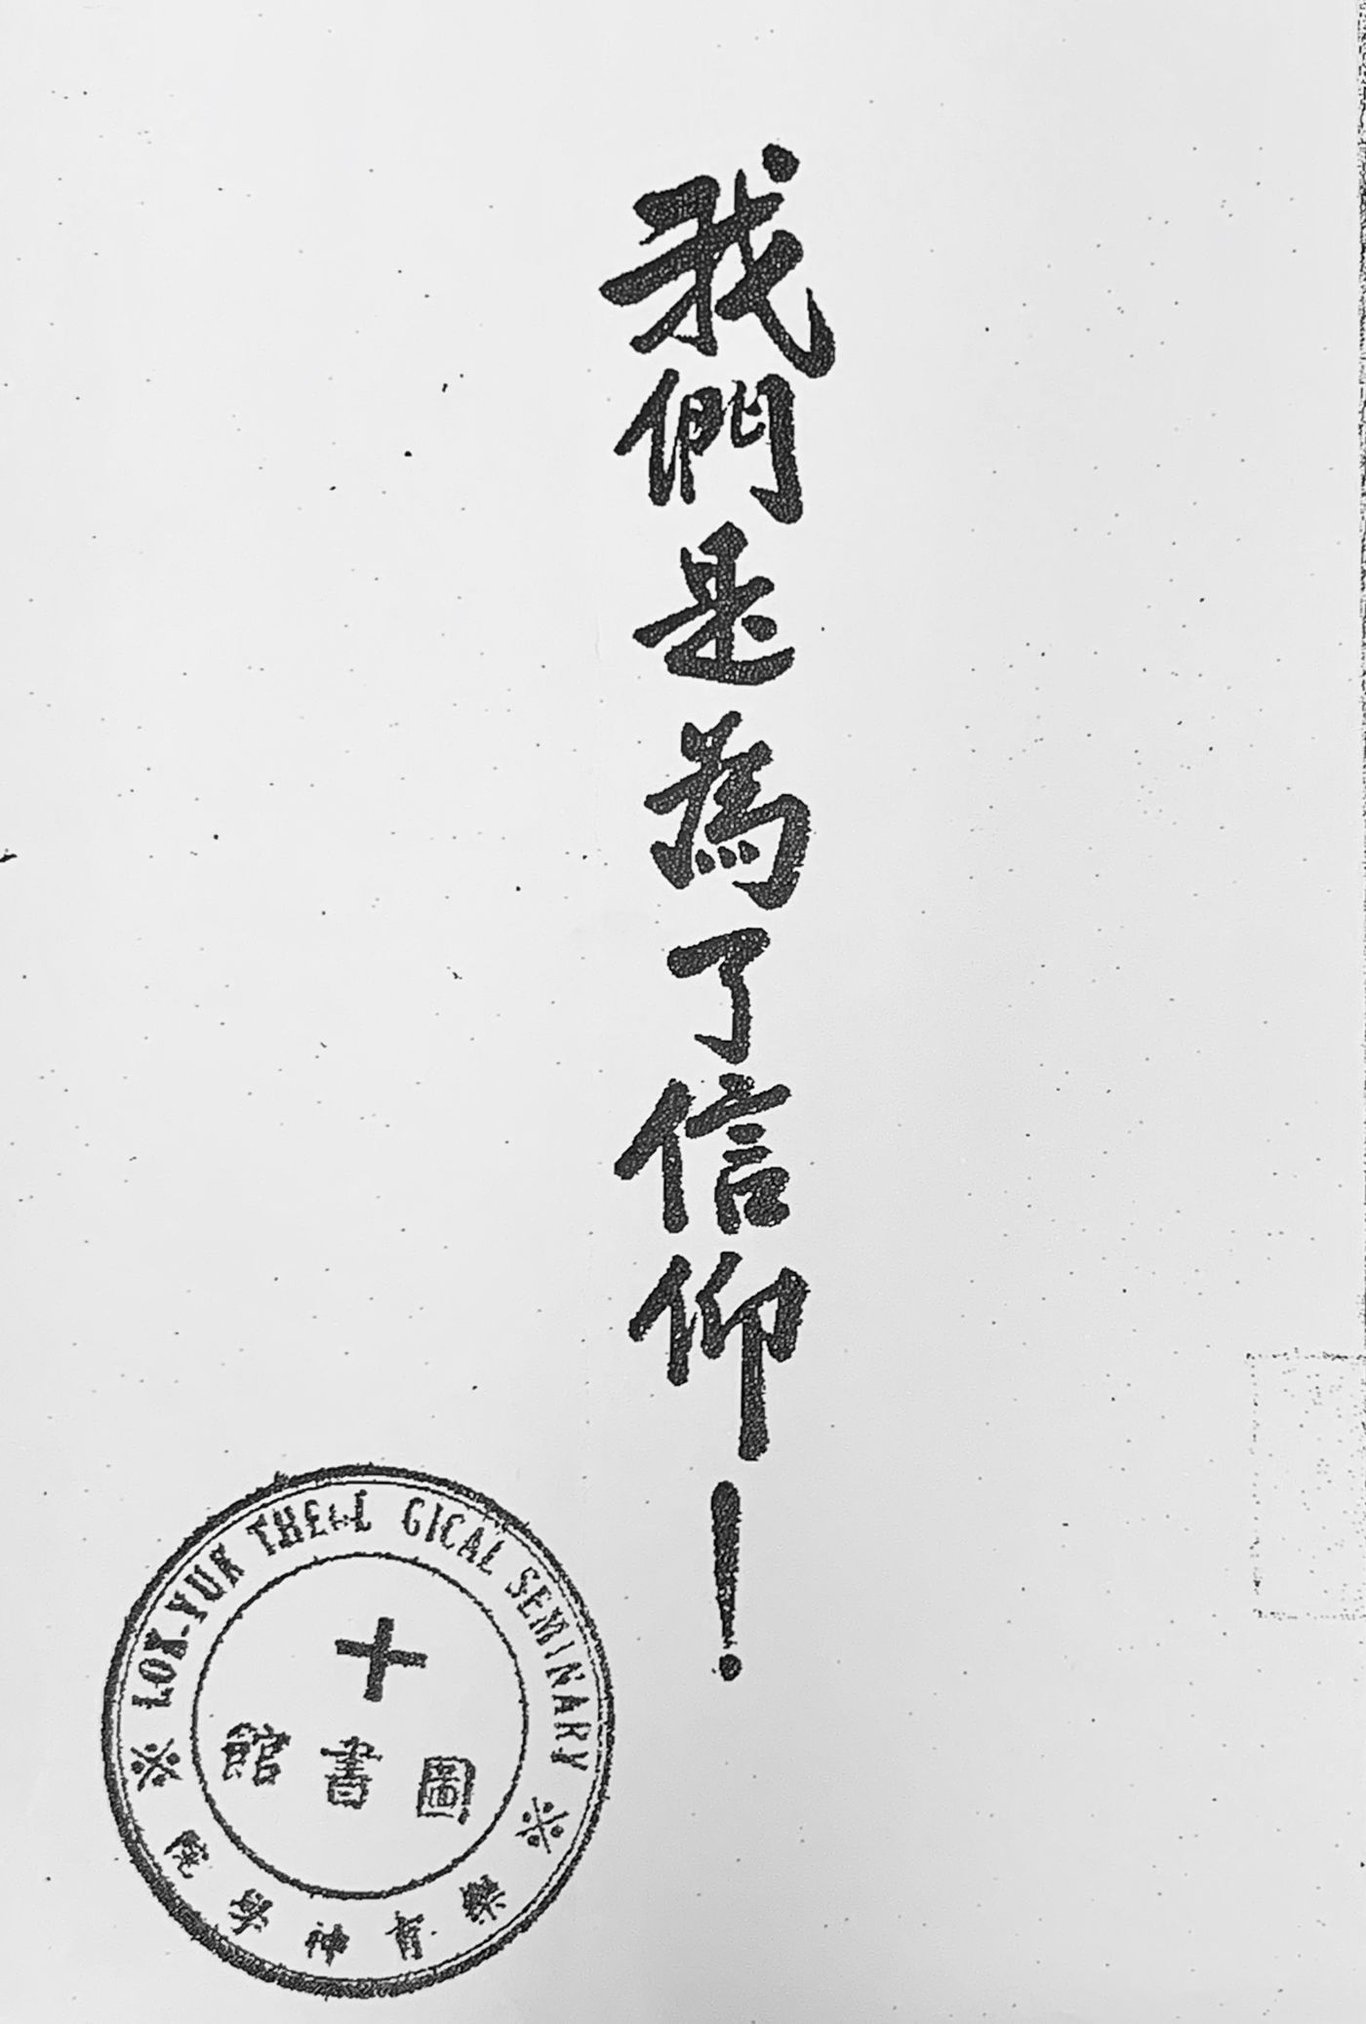 我們是為了信仰！
LOK-YUK THEOLOGICAL SEMINARY
圖書館
樂育神學院